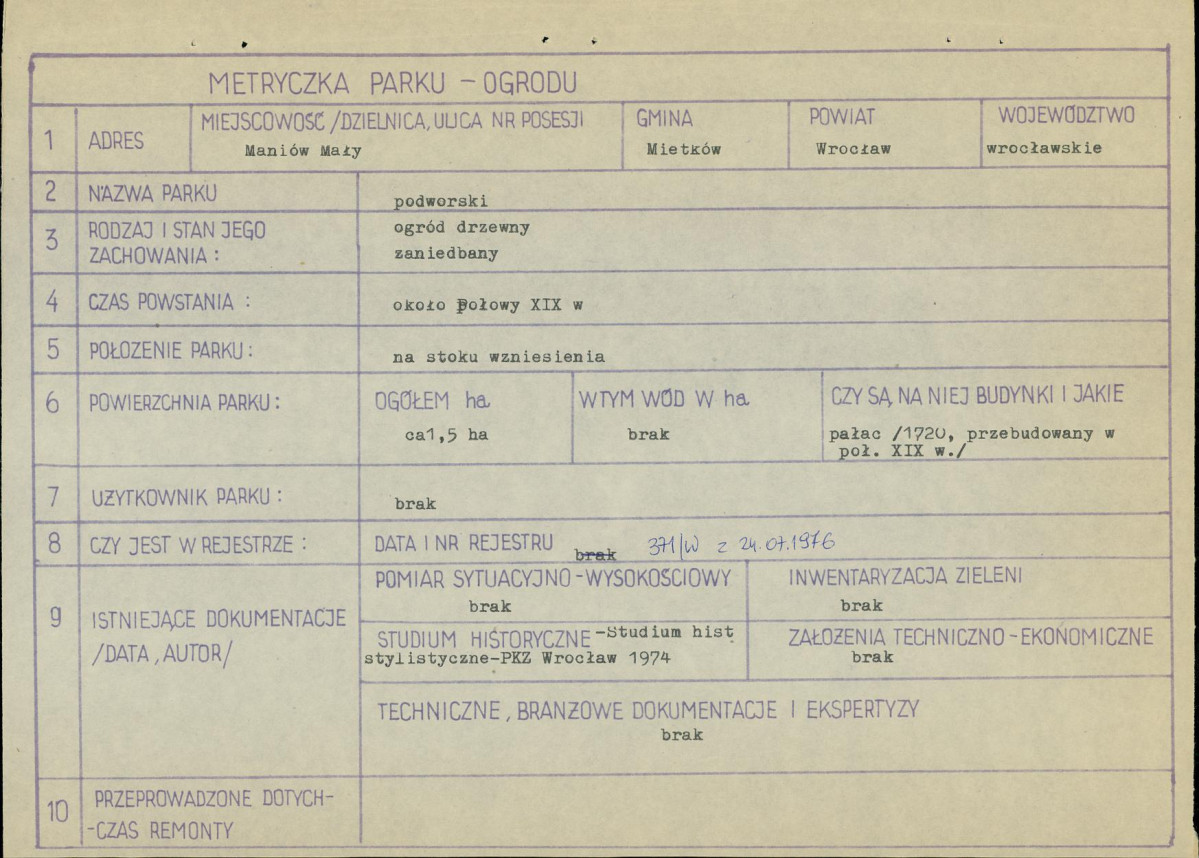 METRYCZKA PARKU – OGRODU
1
ADRES
MIEJSCOWOŚĆ /DZIELNICA, ULICA NR POSESJI
Maniów Mały
GMINA
Mietków
POWIAT
Wrocław
WOJEWÓDZTWO
wrocławskie
2
NAZWA PARKU
podworski
3
RODZAJ I STAN JEGO
ZACHOWANIA :
ogród drzewny
zaniedbany
4
CZAS POWSTANIA :
około połowy XIX w
5
POŁOŻENIE PARKU :
na stoku wzniesienia
6
POWIERZCHNIA PARKU :
OGÓŁEM ha
ca1,5 ha
WTYM WÓD W ha
brak
CZY SĄ NA NIEJ BUDYNKI I JAKIE
pałac /1720, przebudowany w
poł. XIX w./
7
UŻYTKOWNIK PARKU :
brak
8
CZY JEST W REJESTRZE :
DATA I NR REJESTRU brak 371/W z 24.07.1976
9
ISTNIEJĄCE DOKUMENTACJE
/DATA, AUTOR/
POMIAR SYTUACYJNO-WYSOKOŚCIOWY
brak
INWENTARYZACJA ZIELENI
brak
STUDIUM HISTORYCZNE -Studium hist
stylistyczne-PKZ Wrocław 1974
ZAŁOŻENIA TECHNICZNO-EKONOMICZNE
brak
TECHNICZNE, BRANŻOWE DOKUMENTACJE I EKSPERTYZY
brak
10
PRZEPROWADZONE DOTYCH-
-CZAS REMONTY